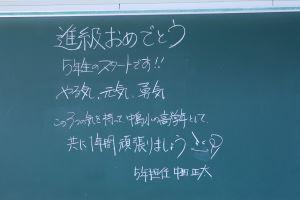 進級おめでとう
5年生のスタートです!!
やる気、元気、勇気
この3つの気を持って中島小の高学年として、
共に1年間頑張りましょう
5年担任 中田 正大